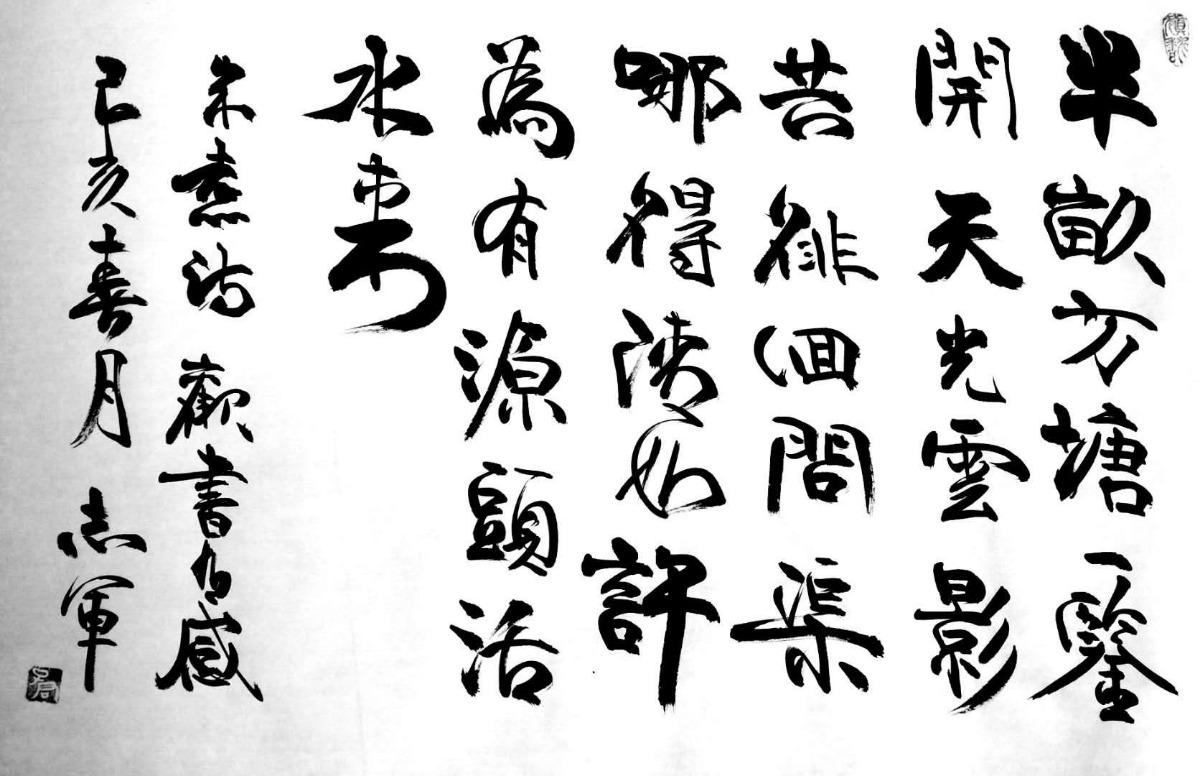 半畝方塘一鑒
開天光雲影
苦徘徊問渠
哪得清如許
為有源頭活
水來
朱熹詩 觀書有感
己亥喜月 志軍